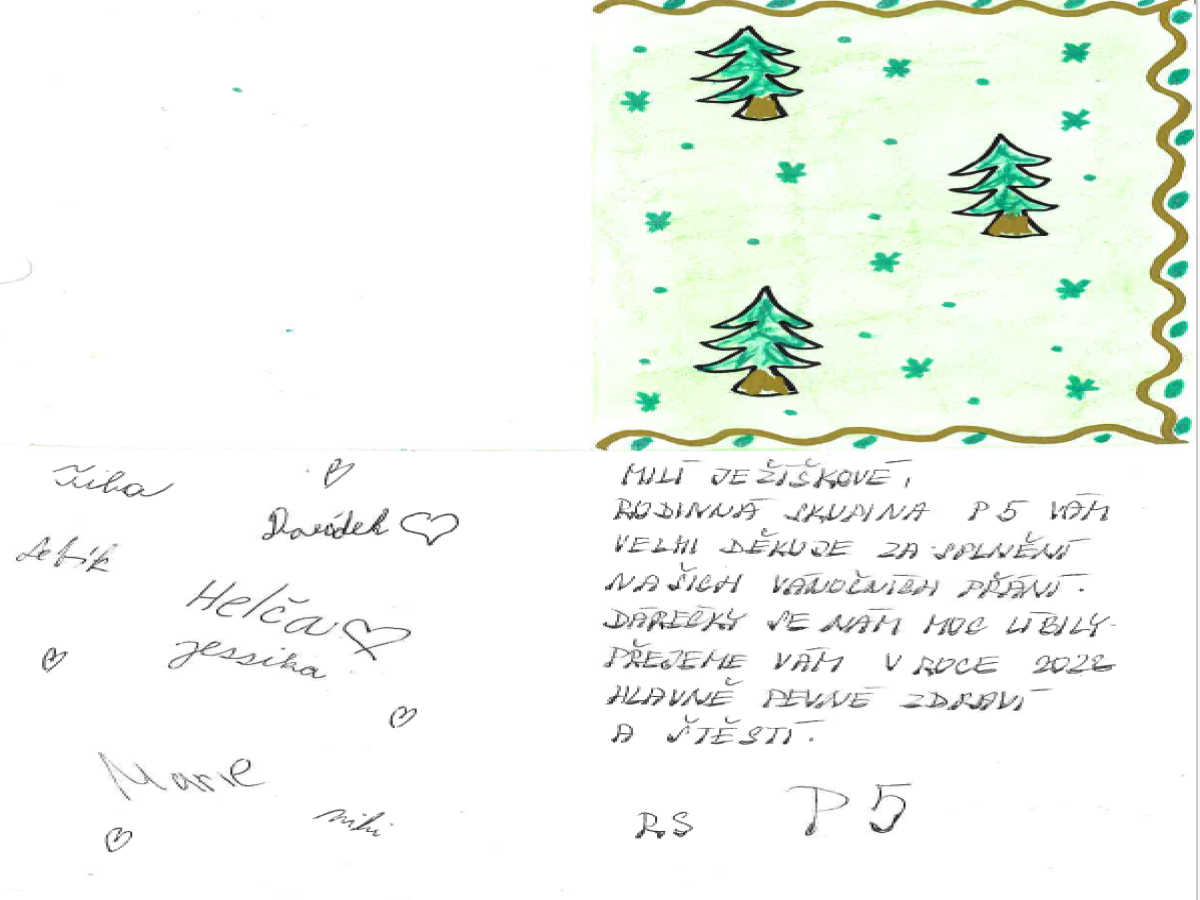 Davídek
Helča
Jessika
Marie
Niki
MILÍ JEŽÍŠKOVÉ,
RODINNÁ SKUPINA P5 VÁM
VELMI DĚKUJE ZA SPLNĚNÍ
NAŠICH VÁNOČNÍCH PŘÁNÍ.
DÁREČKY SE NÁM MOC LÍBILY.
PŘEJEME VÁM V ROCE 2022
HLAVNĚ PEVNÉ ZDRAVÍ
A ŠTĚSTÍ.
RS P5